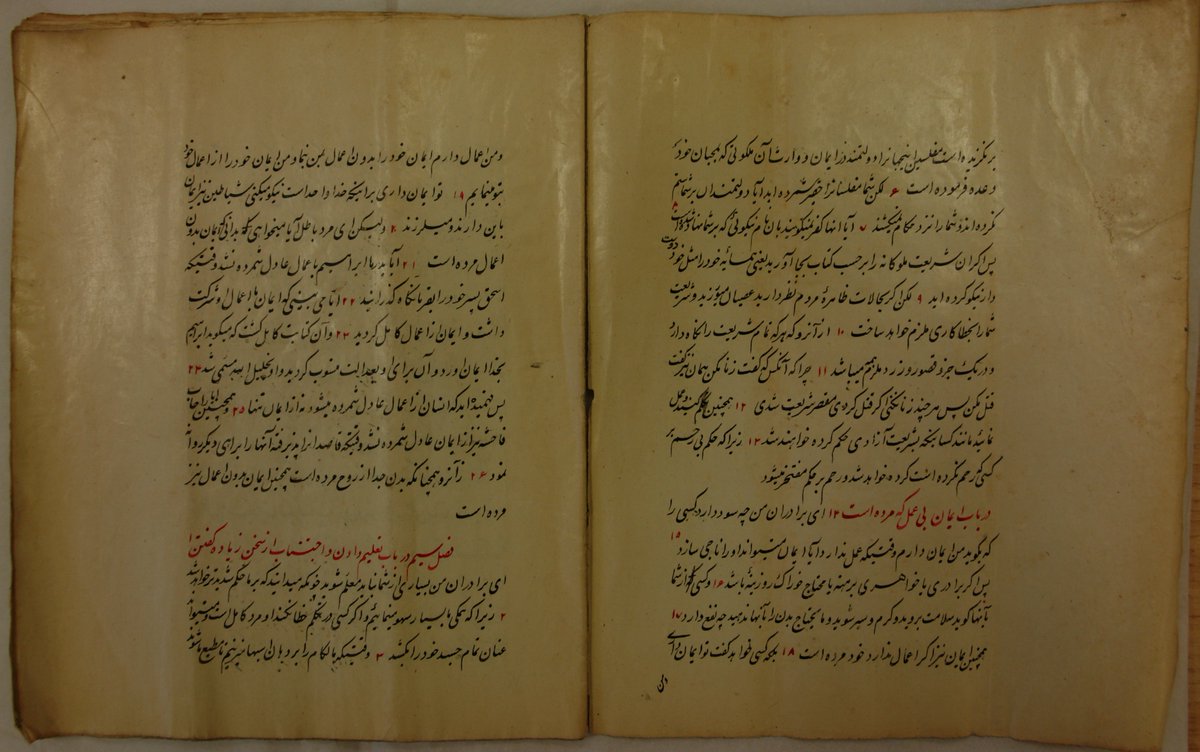 برنگزیده است مفلسان اینجهانرا و دولتمند در ایمان و وارثان آن ملکوتی که بمحبان خود
وعده فرموده است ۶ لکن شما مفلسانرا حقیر شمرده اید آیا دولتمندان بر شما ستم
نکرده اند و شما را نزد حکام نمیکشند ۷ آیا آنها کفر نمیگویند بآن نام نیکوئی که بر شما نهاده شده است ۸
پس اگر آن شریعت ملوکانه را بر حسب کتاب بجا آورید یعنی همسایهٔ خود را مثل خود دوست
دار نیکو کرده اید ۹ لکن اگر بحالات ظاهرهٔ مردم نظر دارید عصیان میورزید و شریعت
شما را بخطاکاری ملزم خواهد ساخت ۱۰ از آنرو که هر که تمام شریعت را نگاه دارد
و در یک جزو قصور ورزد ملزم میباشد ۱۱ چرا که آنکس که گفت زنا مکن همان نیز گفت
قتل مکن پس هر چند زنا نکنی اگر قتل کردی مقصر شریعت شدی ۱۲ همچنین تکلم نمائید و عمل
نمائید مانند کسانیکه بشریعت آزادی حکم کرده خواهند شد ۱۳ زیرا که حکم بی رحم بر
کسی که رحم نکرده است کرده خواهد شد و رحم بر حکم مفتخر میشود
در باب ایمان بی عمل که مرده است ۱۴ ای برادران من چه سود دارد کسی را
که بگوید من ایمان دارم وقتیکه عمل ندارد آیا ایمان میتواند او را ناجی سازد ۱۵
پس اگر برادری یا خواهری برهنه یا محتاج خوراک روزینه باشد ۱۶ و کسی از شما
بآنها گوید سلامت بروید و گرم و سیر شوید و ما یحتاج بدن را بآنها ندهید چه نفع دارد ۱۷
همچنین ایمان نیز اگر اعمال ندارد خود مرده است ۱۸ بلکه کسی خواهد گفت تو ایمان داری
ومن
ومن اعمال دارم ایمان خود را بدون اعمال بمن بنما و من ایمان خود را از اعمال خود
بتو مینمایم ۱۹ تو ایمان داری بر اینکه خدا واحد است نیکو میکنی شیاطین نیز ایمان
باین دارند و میلرزند ۲۰ ولیکن ای مرد باطل آیا میخواهی که بدانی که ایمان بدون
اعمال مرده است ۲۱ آیا پدر ما ابراهیم باعمال عادل شمرده نشد وقتیکه
اسحق پسر خود را بقربانگاه گذرانید ۲۲ آیا می بینی که ایمان با اعمال او شرکت
داشت و ایمان از اعمال کامل گردید ۲۳ و آن کتاب کامل گشت که میگوید ابراهیم
بخدا ایمان آورد و آن برای او بعدالت منسوب گردید و او بخلیل الله مسمی شد ۲۴
پس فهمیده اید که انسان از اعمال عادل شمرده میشود نه از ایمان تنها ۲۵ و همچنین آیا راحاب
فاحشه نیز از ایمان عادل شمرده نشد وقتیکه قاصدانرا پذیرفته آنها را براهی دیگر روانه
نمود ۲۶ زآنرو همچنانکه بدن جدا از روح مرده است همچنین ایمان بدون اعمال نیز
مرده است
فصل سیم در باب تعلیم دادن و اجتناب از سخن زیاده گفتن ۱
ای برادران من بسیاری از شما نباید معلم شوید چونکه میدانید که بر ما حکم شدیدتر خواهد شد
۲ زیرا که همگی ما بسیار سهو مینمائیم و اگر کسی در تکلم خطا نکند او مرد کامل است و میتواند
عنان تمام جسد خود را بکشد ۳ وقتیکه ما لگام را بر دهان اسبها میزنیم تا مطیع ما شوند